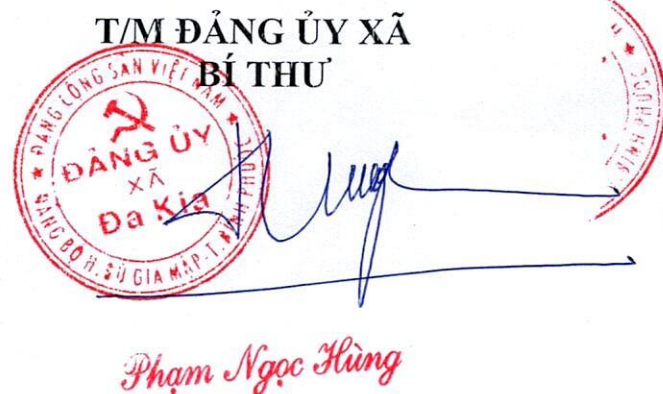 T/M ĐẢNG ỦY XÃ
BÍ THƯ
ĐẢNG CỘNG SẢN VIỆT NAM
ĐẢNG ỦY
XÃ
Đa Kia
ĐẢNG BỘ H. BÙ GIA MẬP-T. BÌNH PHƯỚC
BÌNH PHƯỚC
Phạm Ngọc Hùng